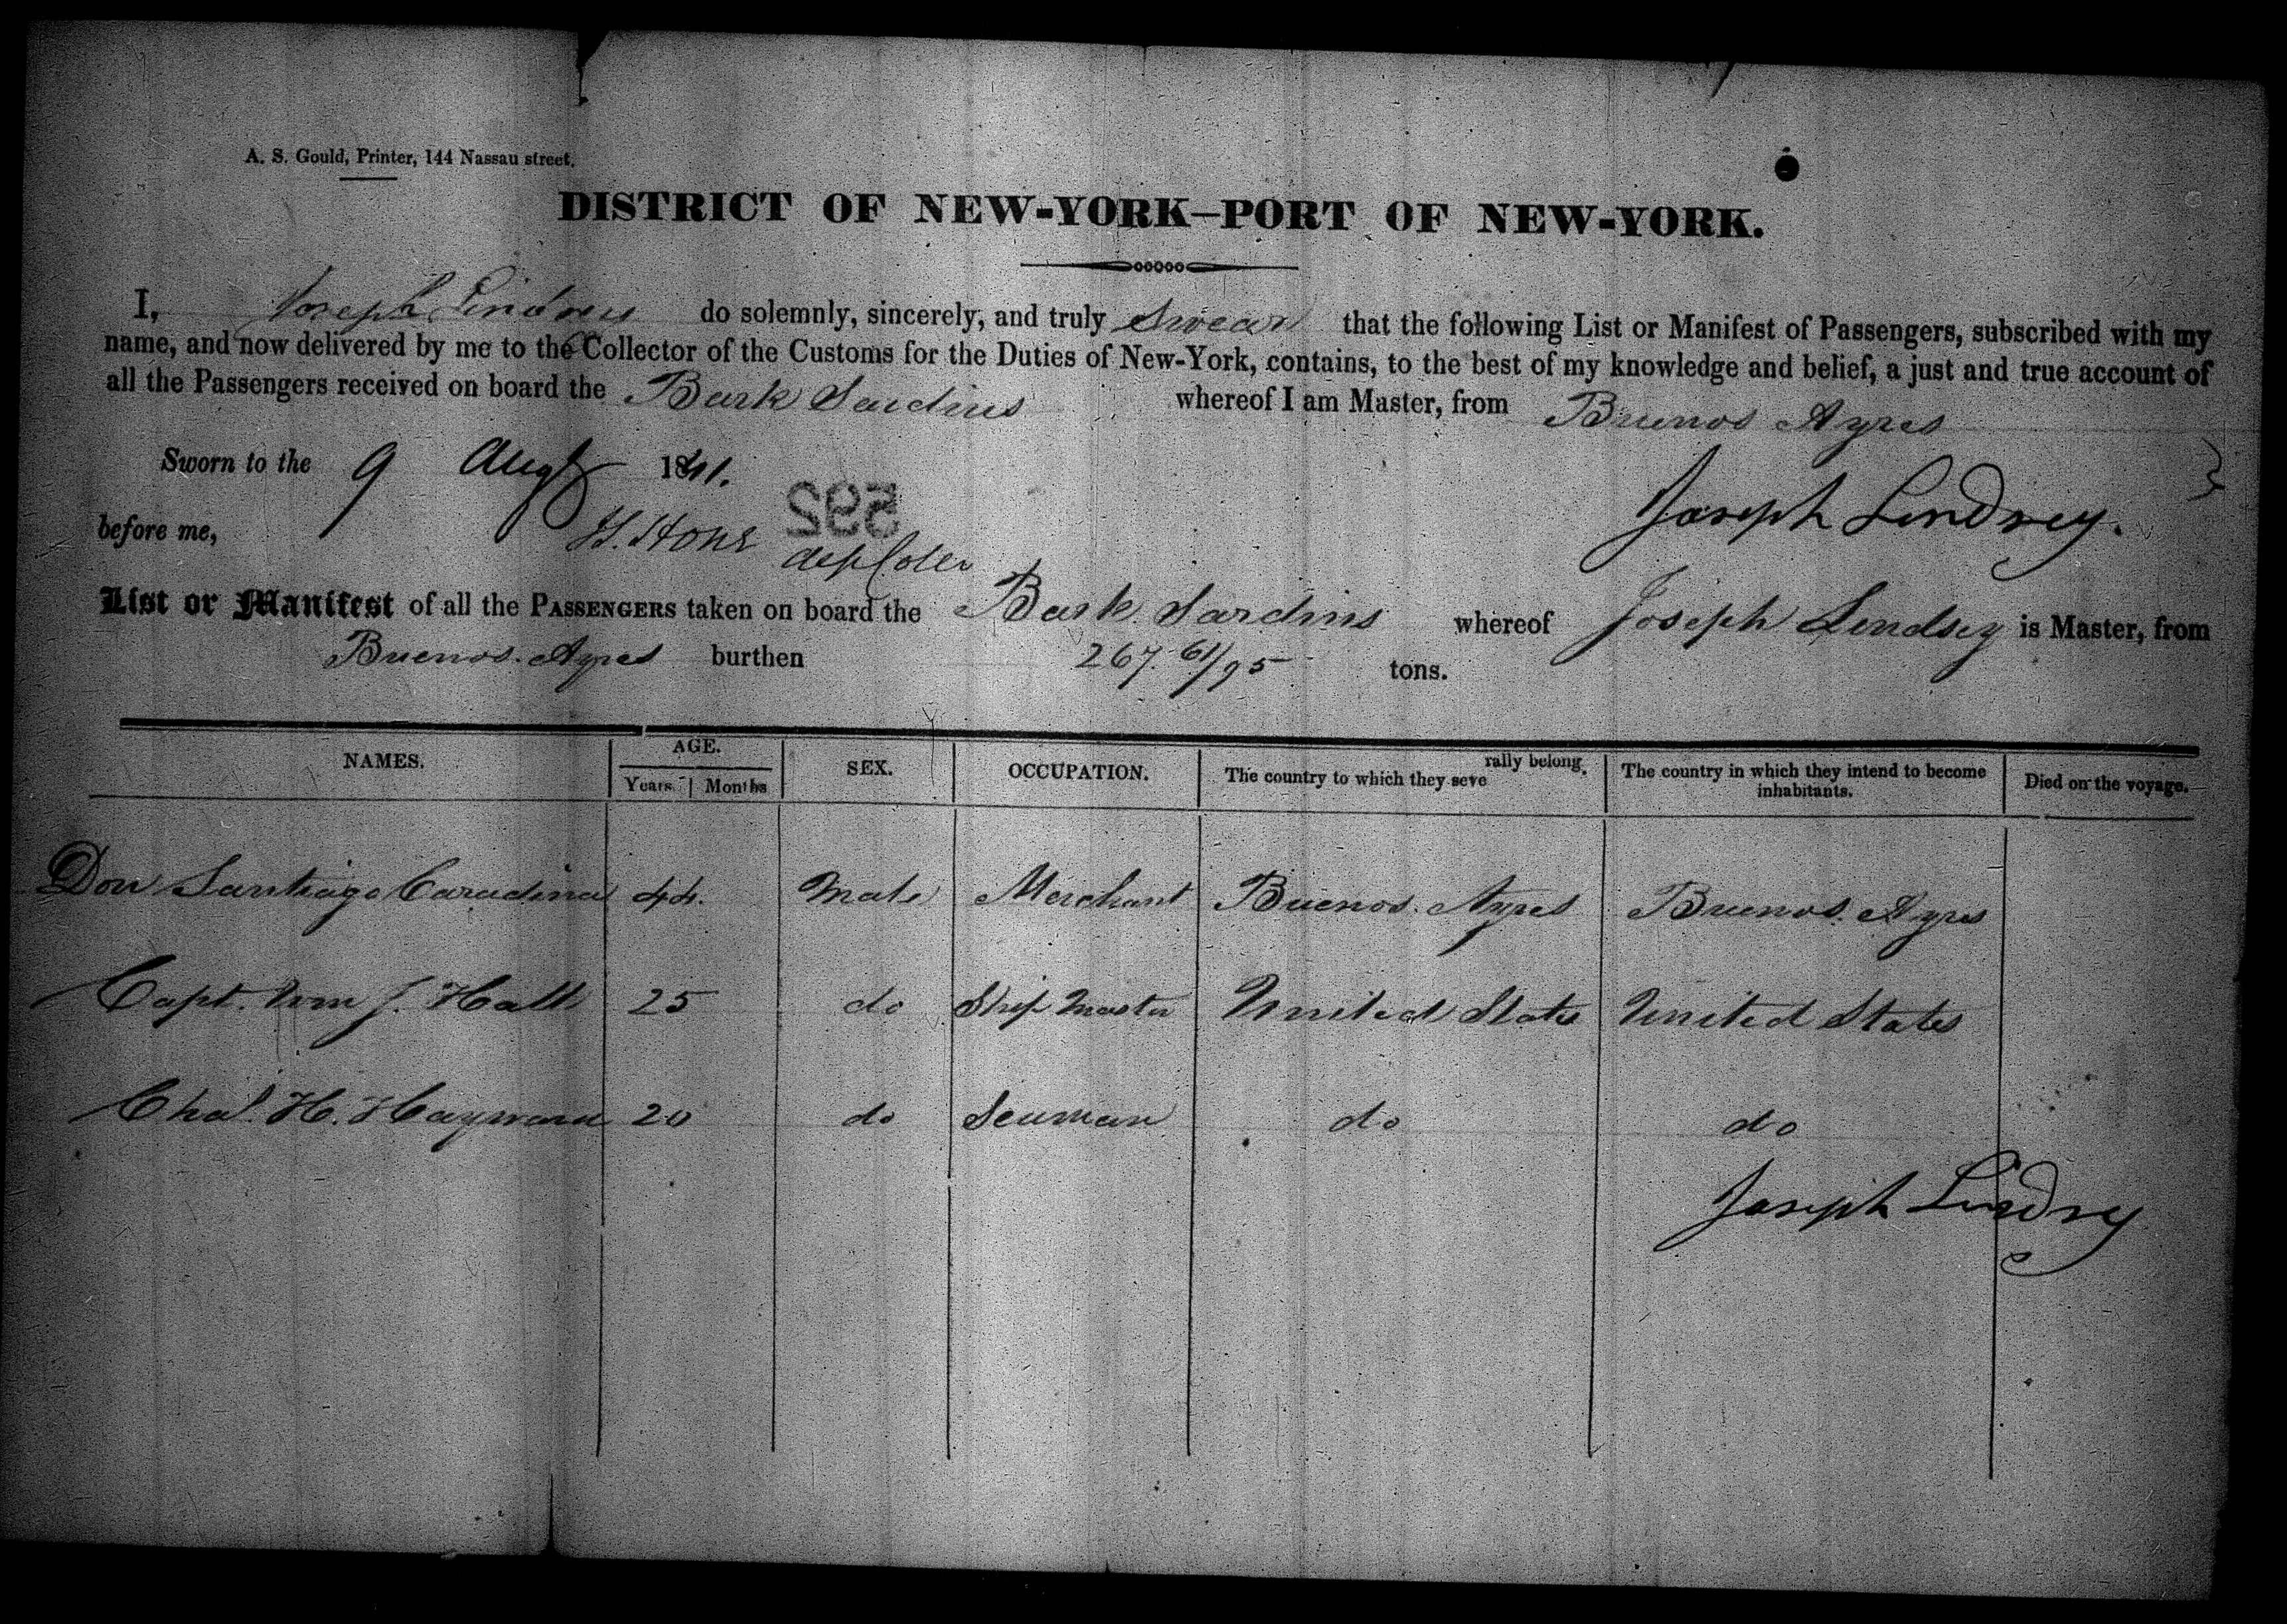 A. S. Gould, Printer, 144 Nassau street.
DISTRICT OF NEW-YORK—PORT OF NEW-YORK.
I, Joseph Lindsey do solemnly, sincerely, and truly Swear that the following List or Manifest of Passengers, subscribed with my
name, and now delivered by me to the Collector of the Customs for the Duties of New-York, contains, to the best of my knowledge and belief, a just and true account of
all the Passengers received on board the Bark Sardius whereof I am Master, from Buenos Ayres
Sworn to the 9 Augt 1841.
592
Joseph Lindsey.
before me, Hone dep Coller
List or Manifest of all the PASSENGERS taken on board the Bark Sardius whereof Joseph Lindsey is Master, from
Buenos Ayres burthen 267. 61/95 tons.
NAMES. AGE. Years. Months SEX. OCCUPATION. The country to which they severally belong. The country in which they intend to become inhabitants. Died on the voyage.
Don Santiago 44. Male Merchant Buenos. Ayres Buenos. Ayres
Capt. Wm J. Hall 25 do Ship Master United States United States
Chas. H. Hayward 20 do Seaman do do
Joseph Lindsey